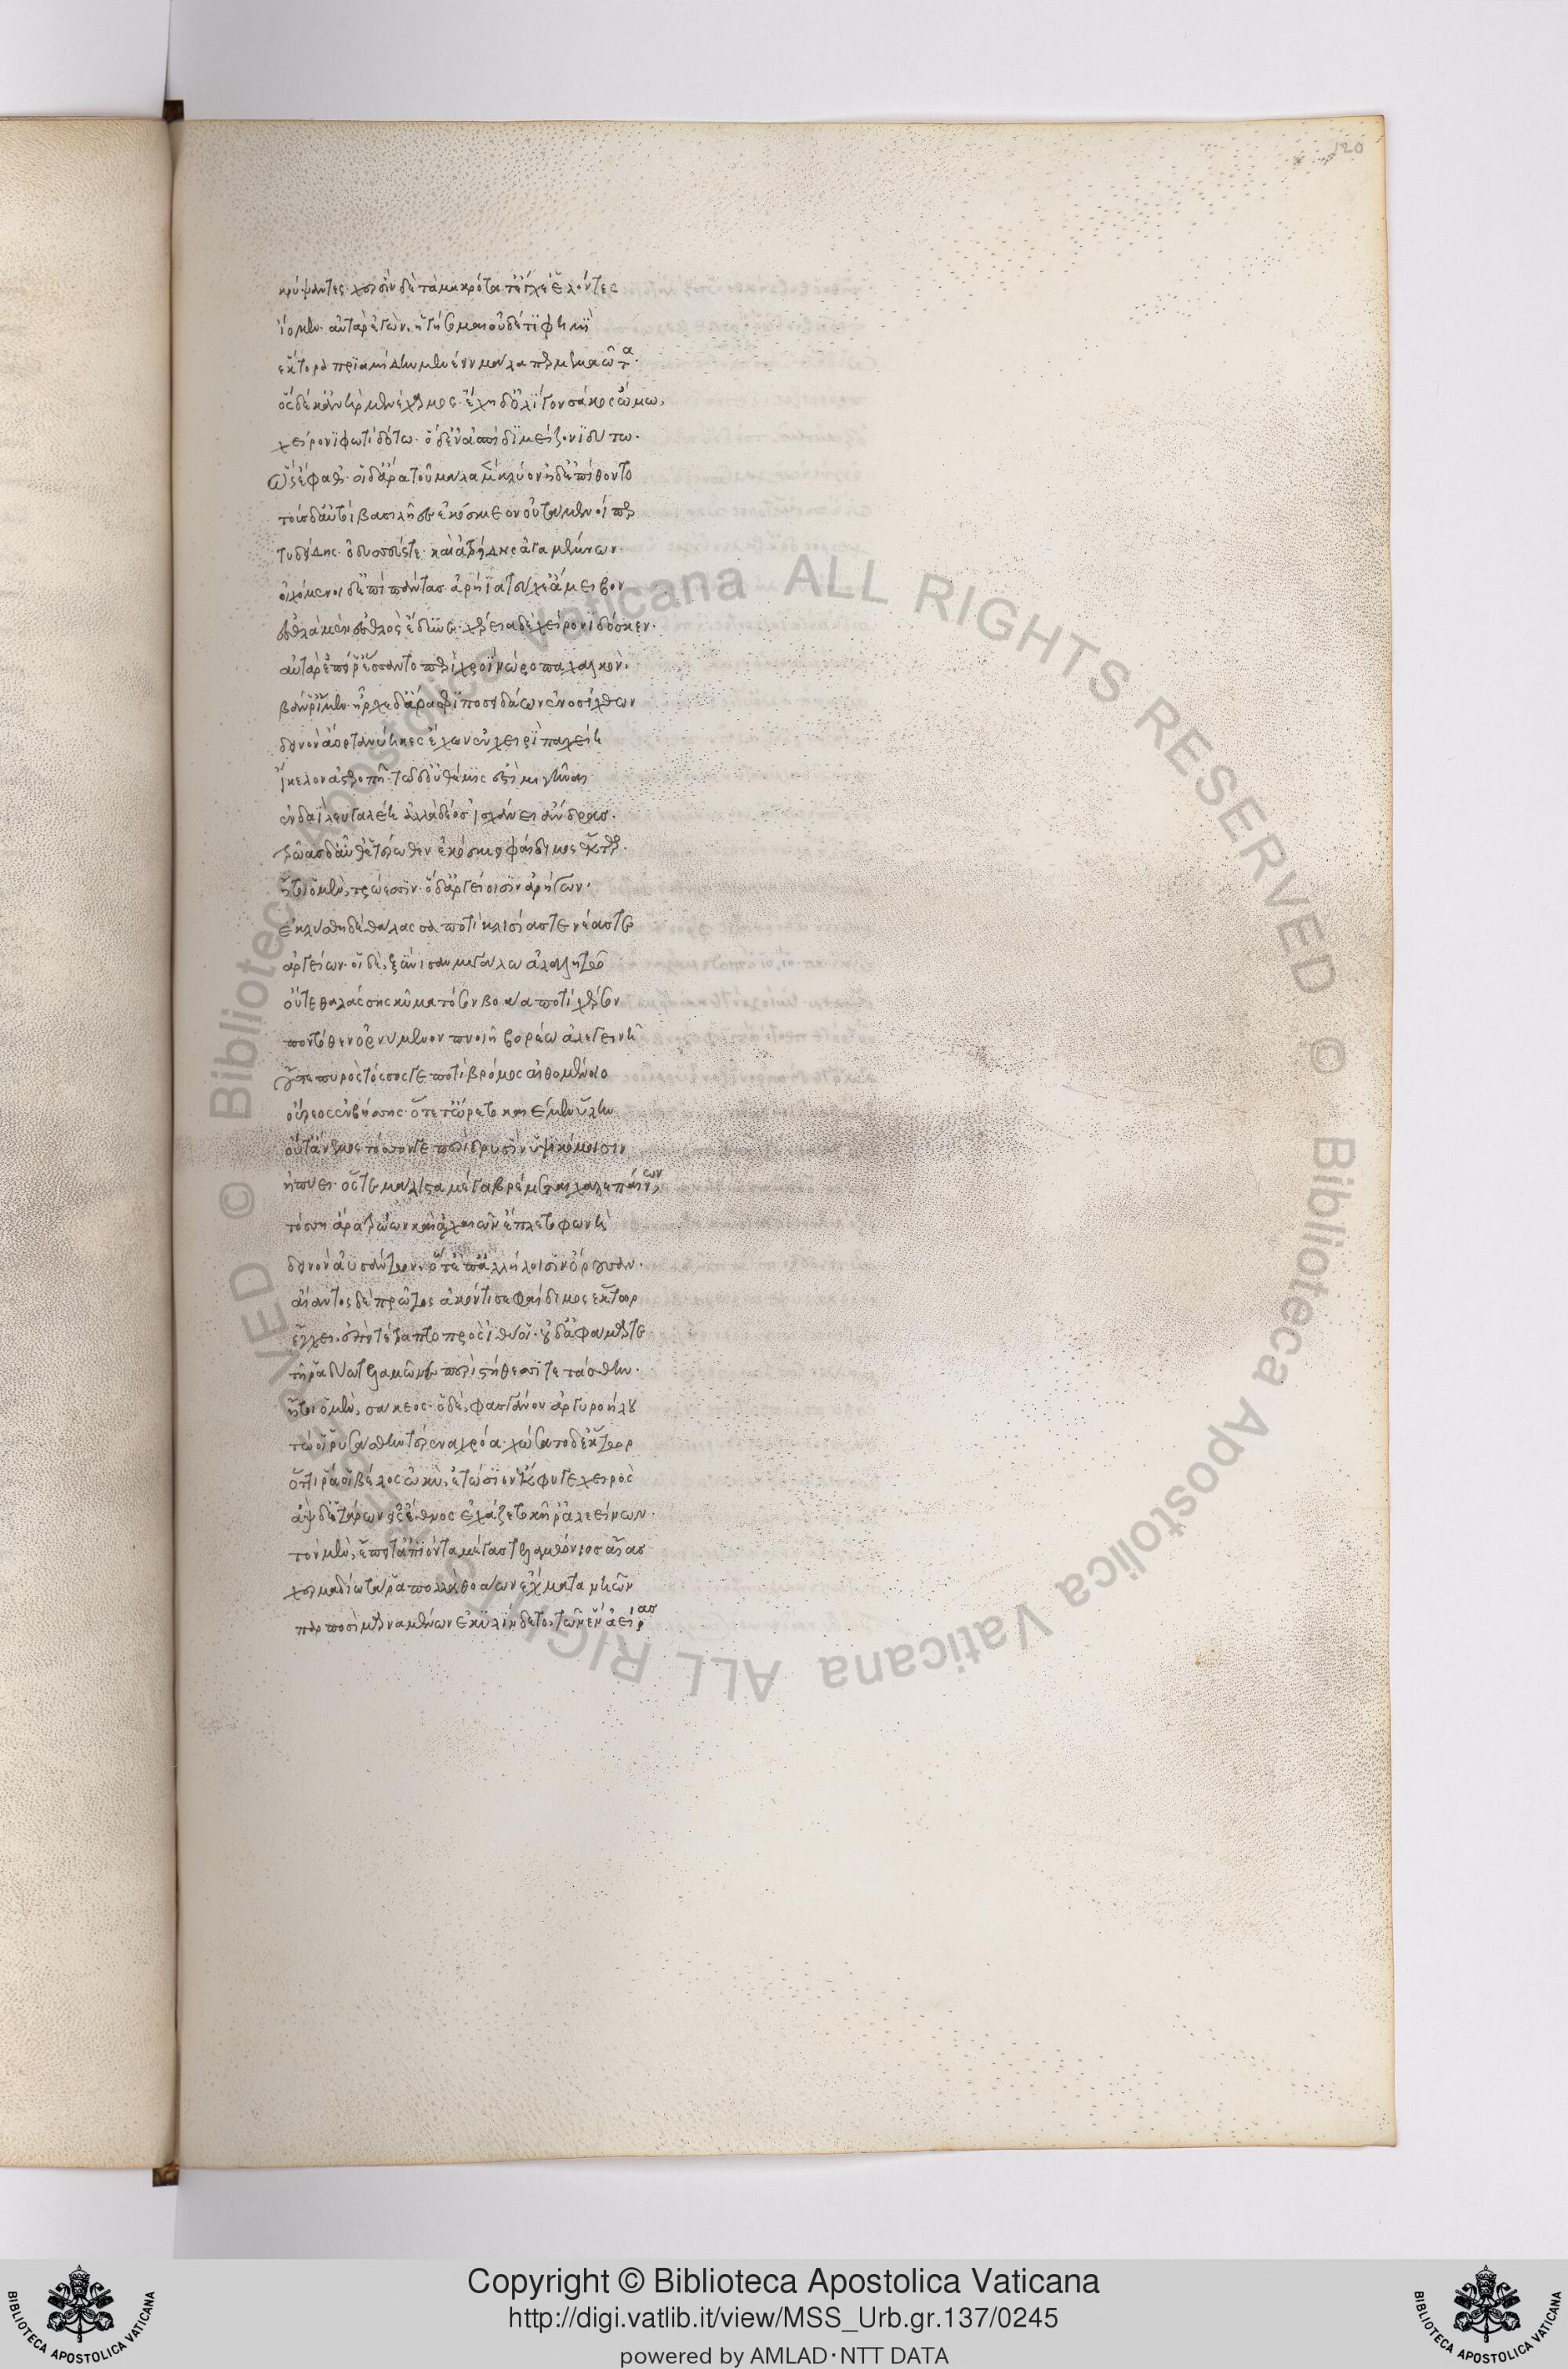 120
κρύψαντες· χερσὶν δὲ τὰ μακρότατ' ἔγχε' ἑλόντες
ἴομεν· αὐτὰρ ἐγὼν, ἡγήσομαι οὐδέ τι φημὶ
ἕκτορα πριαμίδην μενέειν μάλα περ μεμαῶτα.
ὃς δέ κ' ἀνὴρ μενέχαρμος· ἔχη δ' ὀλίγον σάκος ὤμω,
χείρονι φωτὶ δότω· ὁ δ' ἐν ἀσπίδι μείζονι δύτω.
ὣς ἔφαθ'· οἱ δ' ἄρα τοῦ μάλα μὲν κλύον ἠδ' ἐπίθοντο
τοὺς δ' αὐτοὶ βασιλῆες ἐκόσμεον οὐτάμενοί περ
τυδείδης· ὀδυσσεύς τε· καὶ ἀτρείδης ἀγαμέμνων·
οἰχόμενοι δ' ἐπὶ πάντας ἀρήϊα τεύχε' ἄμειβον
ἐσθλὰ μὲν ἐσθλὸς ἔδυνε· χέρεια δὲ χείρονι δόσκεν·
αὐτὰρ ἐπεί ῥ' ἕσσαντο περὶ χροῒ νώροπα χαλκὸν·
βάν ῥ' ἴμεν· ἦρχε δ' ἄρα σφι ποσειδάων ἐνοσίχθων
δεινὸν ἄορ τανύηκες ἔχων ἐν χειρὶ παχείη
ἴκελον ἀστεροπῆ· τῶ δ' οὐ θέμις ἐστὶ μιγῆναι
ἐν δαῒ λευγαλέη ἀλλὰ δέος ἰσχάνει ἄνδρας.
τρῶας δ' αὖθ' ἑτέρωθεν ἐκόσμει φαίδιμος ἕκτωρ.
ἤτοι ὁ μὲν, τρώεσσιν· ὁ δ' ἀργείοισιν ἀρήγων·
ἐκλύσθη δὲ θάλασσα ποτὶ κλισίας τε νέας τε
ἀργείων· οἱ δὲ, ξύνισαν μεγάλω ἀλαλητῶ
οὔτε θαλάσσης κῦμα τόσον βοάα ποτὶ χέρσον
ποντόθεν ὀρνύμενον πνοιῆ βορέω ἀλεγεινῆ
οὔτε πυρὸς τόσσος γε ποτὶ βρόμος αἰθομένοιο
οὔρεος ἐν βήσσης· ὅτε τ' ὤρετο καιέμεν ὕλην
οὔτ' ἄνεμος τόσσον γε περὶ δρυσὶν ὑψικόμοισιν
ἠπύει· ὅς τε μάλιστα μέγα βρέμεται χαλεπαίνων,
τόσση ἄρα τρώων καὶ ἀχαιῶν ἔπλετο φωνὴ
δεινὸν ἀϋσάντων, ὅτ' ἐπ' ἀλλήλοισιν ὄρουσαν.
αἴαντος δὲ πρῶτος ἀκόντισε φαίδιμος ἕκτωρ
ἔγχει· ἐπεὶ τέτραπτο πρὸς ἰθύ οἱ· οὐδ' ἀφάμαρτε
τῆ ῥα δύω τελαμῶνε περὶ στήθεσσι τετάσθην·
ἤτοι ὁ μὲν, σάκεος· ὁ δὲ, φασγάνου ἀργυροήλου
τώ οἱ ῥυσάσθην τέρενα χρόα· χώσατο δ' ἕκτωρ
ὅττι ῥά οἱ βέλος ὠκὺ, ἐτώσιον ἔκφυγε χειρὸς
ἂψ δ' ἑτάρων εἰς ἔθνος ἐχάζετο κῆρ' ἀλεείνων·
τὸν μὲν, ἔπειτ' ἀπιόντα μέγας τελαμώνιος αἴας
χερμαδίω τά ῥα πολλὰ θοάων ἔχματα νηῶν
πὰρ ποσὶ μαρναμένων ἐκυλίνδετο, τῶν ἓν ἀείρας
© Biblioteca Apostolica Vaticana ALL RIGHTS RESERVED © Biblioteca Apostolica Vaticana ALL RIGHTS RESERVED
Copyright © Biblioteca Apostolica Vaticana
http://digi.vatlib.it/view/MSS_Urb.gr.137/0245
powered by AMLAD·NTT DATA
BIBLIOTECA APOSTOLICA VATICANA
BIBLIOTECA APOSTOLICA VATICANA